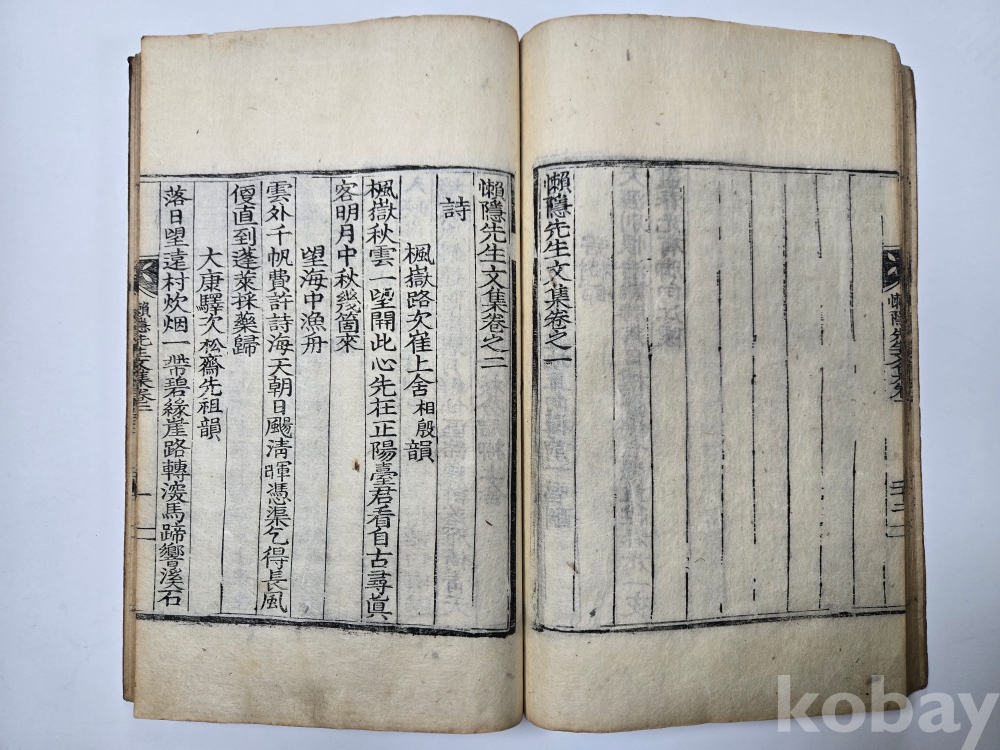 懶隱先生文集卷之一
懶隱先生文集卷一
懶隱先生文集卷之二
詩
楓嶽路次崔上舍相殷韻
楓嶽秋雲一望開此心先在正陽臺君看自古尋眞
客明月中秋幾箇來
望海中漁舟
雲外千帆費許詩海天朝日颺淸暉憑渠乞得長風
便直到蓬萊採藥歸
大康驛次松齋先祖韻
落日望遠村炊烟一帶碧緣崖路轉深馬蹄響溪石
懶隱先生文集卷二
一
kobay